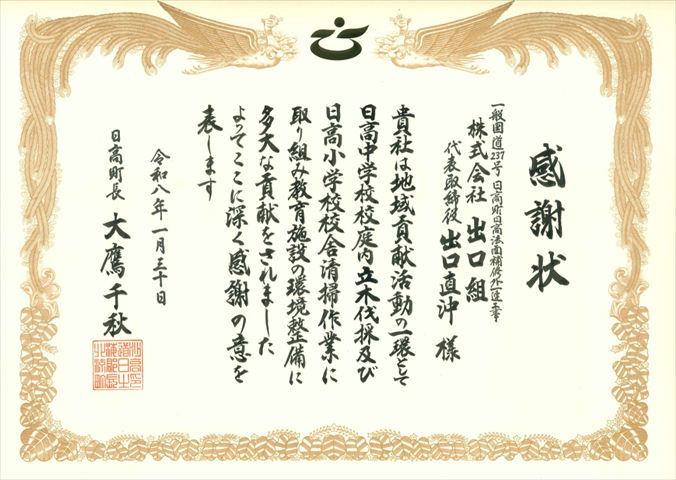 感謝状
一般国道237号 日高町日高法面補修外一連工事
株式会社 出口組
代表取締役 出口直沖 様
貴社は地域貢献活動の一環として
日高中学校校庭内立木伐採及び
日高小学校校舎清掃作業に
取り組み教育施設の環境整備に
多大な貢献をされました
よってここに深く感謝の意を
表します
令和八年一月三十日
日高町長 大鷹千秋